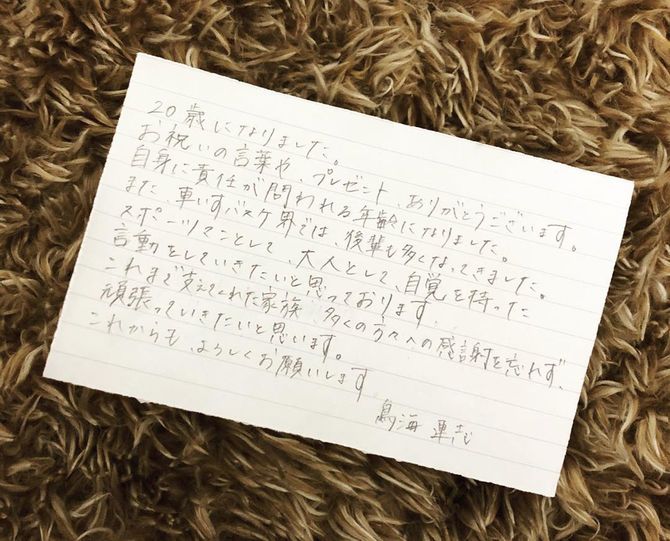 20歳になりました。
お祝いの言葉や、プレゼント、ありがとうございます。
自身に責任が問われる年齢になりました。
また、車いすバスケ界では、後輩も多くなってきました。
スポーツマンとして、大人として、自覚を持った
言動をしていきたいと思っております.
これまで支えてくれた家族、多くの方々への感謝を忘れず、
頑張っていきたいと思います。
これからも、よろしくお願いします
鳥海 連志